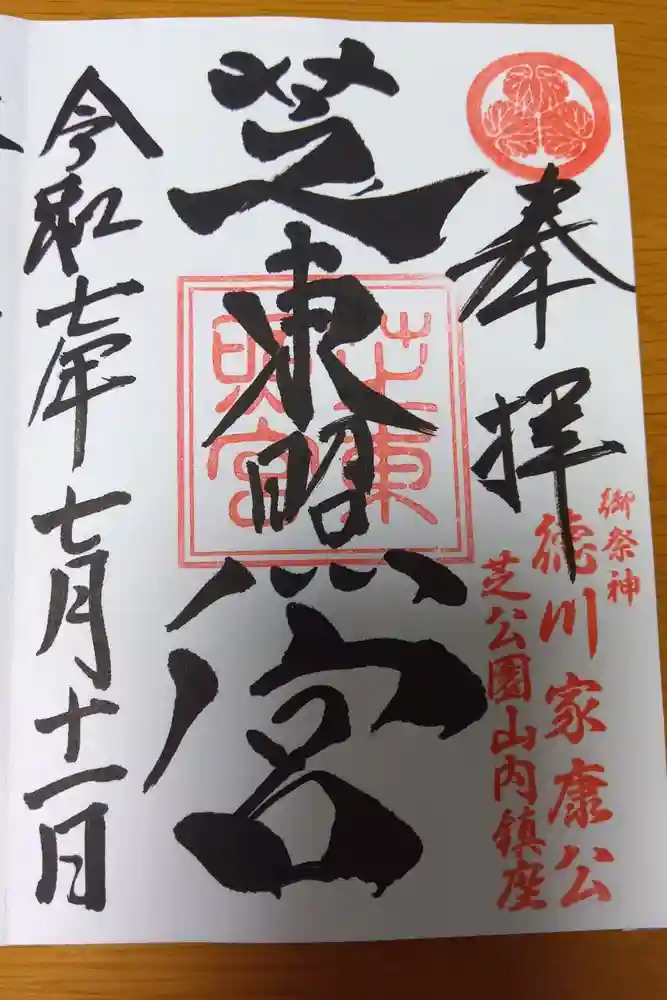 奉拝
御祭神
徳川家康公
芝公園山内鎮座
芝東照宮
芝東
照宮
令和七年七月十一日